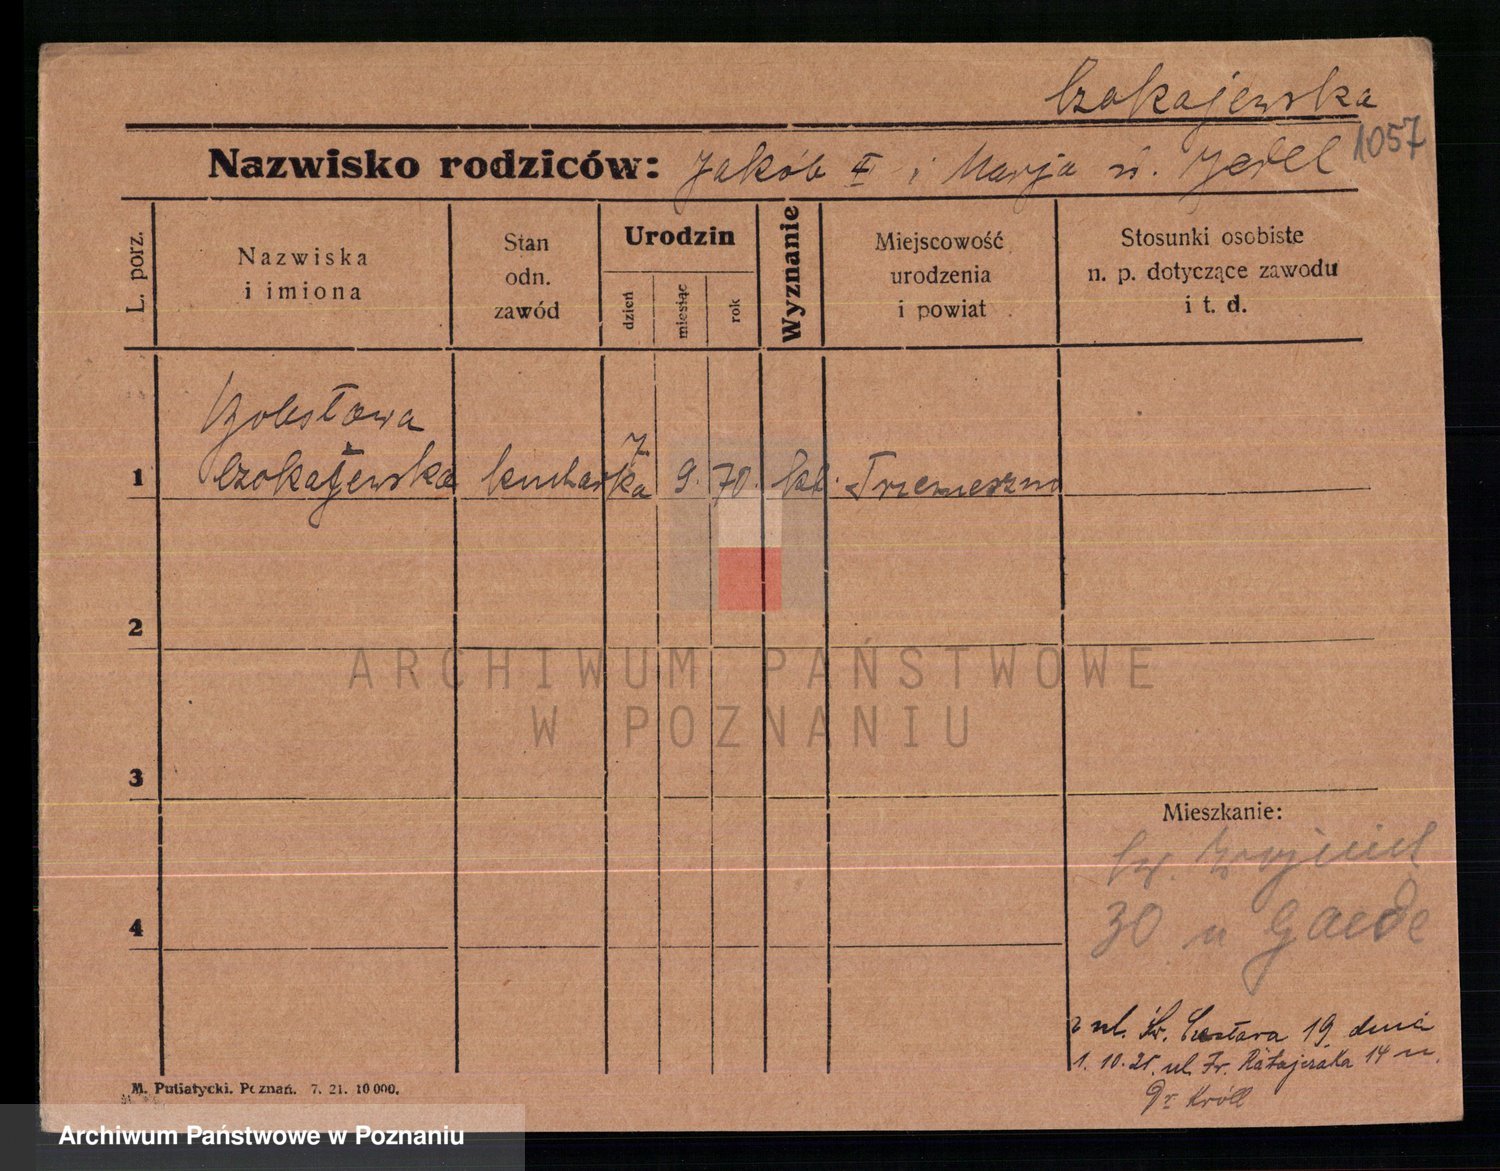 Czokajewska
1057
Nazwisko rodziców: Jakób i Marja
L. porz.
Nazwiska
i imiona
Stan
odn.
zawód
Urodzin
dzień
miesiąc
rok
Wyznanie
Miejscowość
urodzenia
i powiat
Stosunki osobiste
n. p. dotyczące zawodu
i t. d.
1
Czokajewska
kucharka
7. 9. 70.
kt.
Trzemeszno
2
ARCHIWUM PAŃSTWOWE
W POZNANIU
3
Mieszkanie:
św. Wojciech
30 u Gaede
4
z ul. Św. Czesława 19 dnia
1. 10. 21. ul. Fr. Ratajczaka 14 u.
Dr Król
M. Putiatycki. Poznań. 7. 21. 10 000.
Archiwum Państwowe w Poznaniu